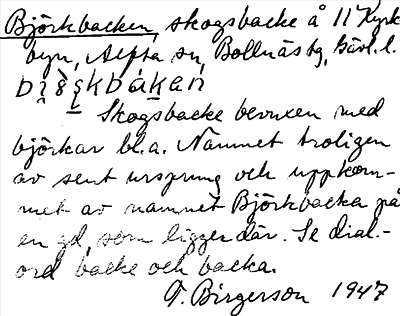 Björkbacken, skogsbacke å 11 Kyrk
byn, Alfta sn, Bollnäs tg, Gävl. l.
Skogsbacke bevuxen med
björkar bl.a. Namnet troligen
av sent ursprung och uppkom-
met av namnet Björkbacka på
en gd, som ligger där. Se dial.-
ord backe och backa.
G. Birgerson 1947